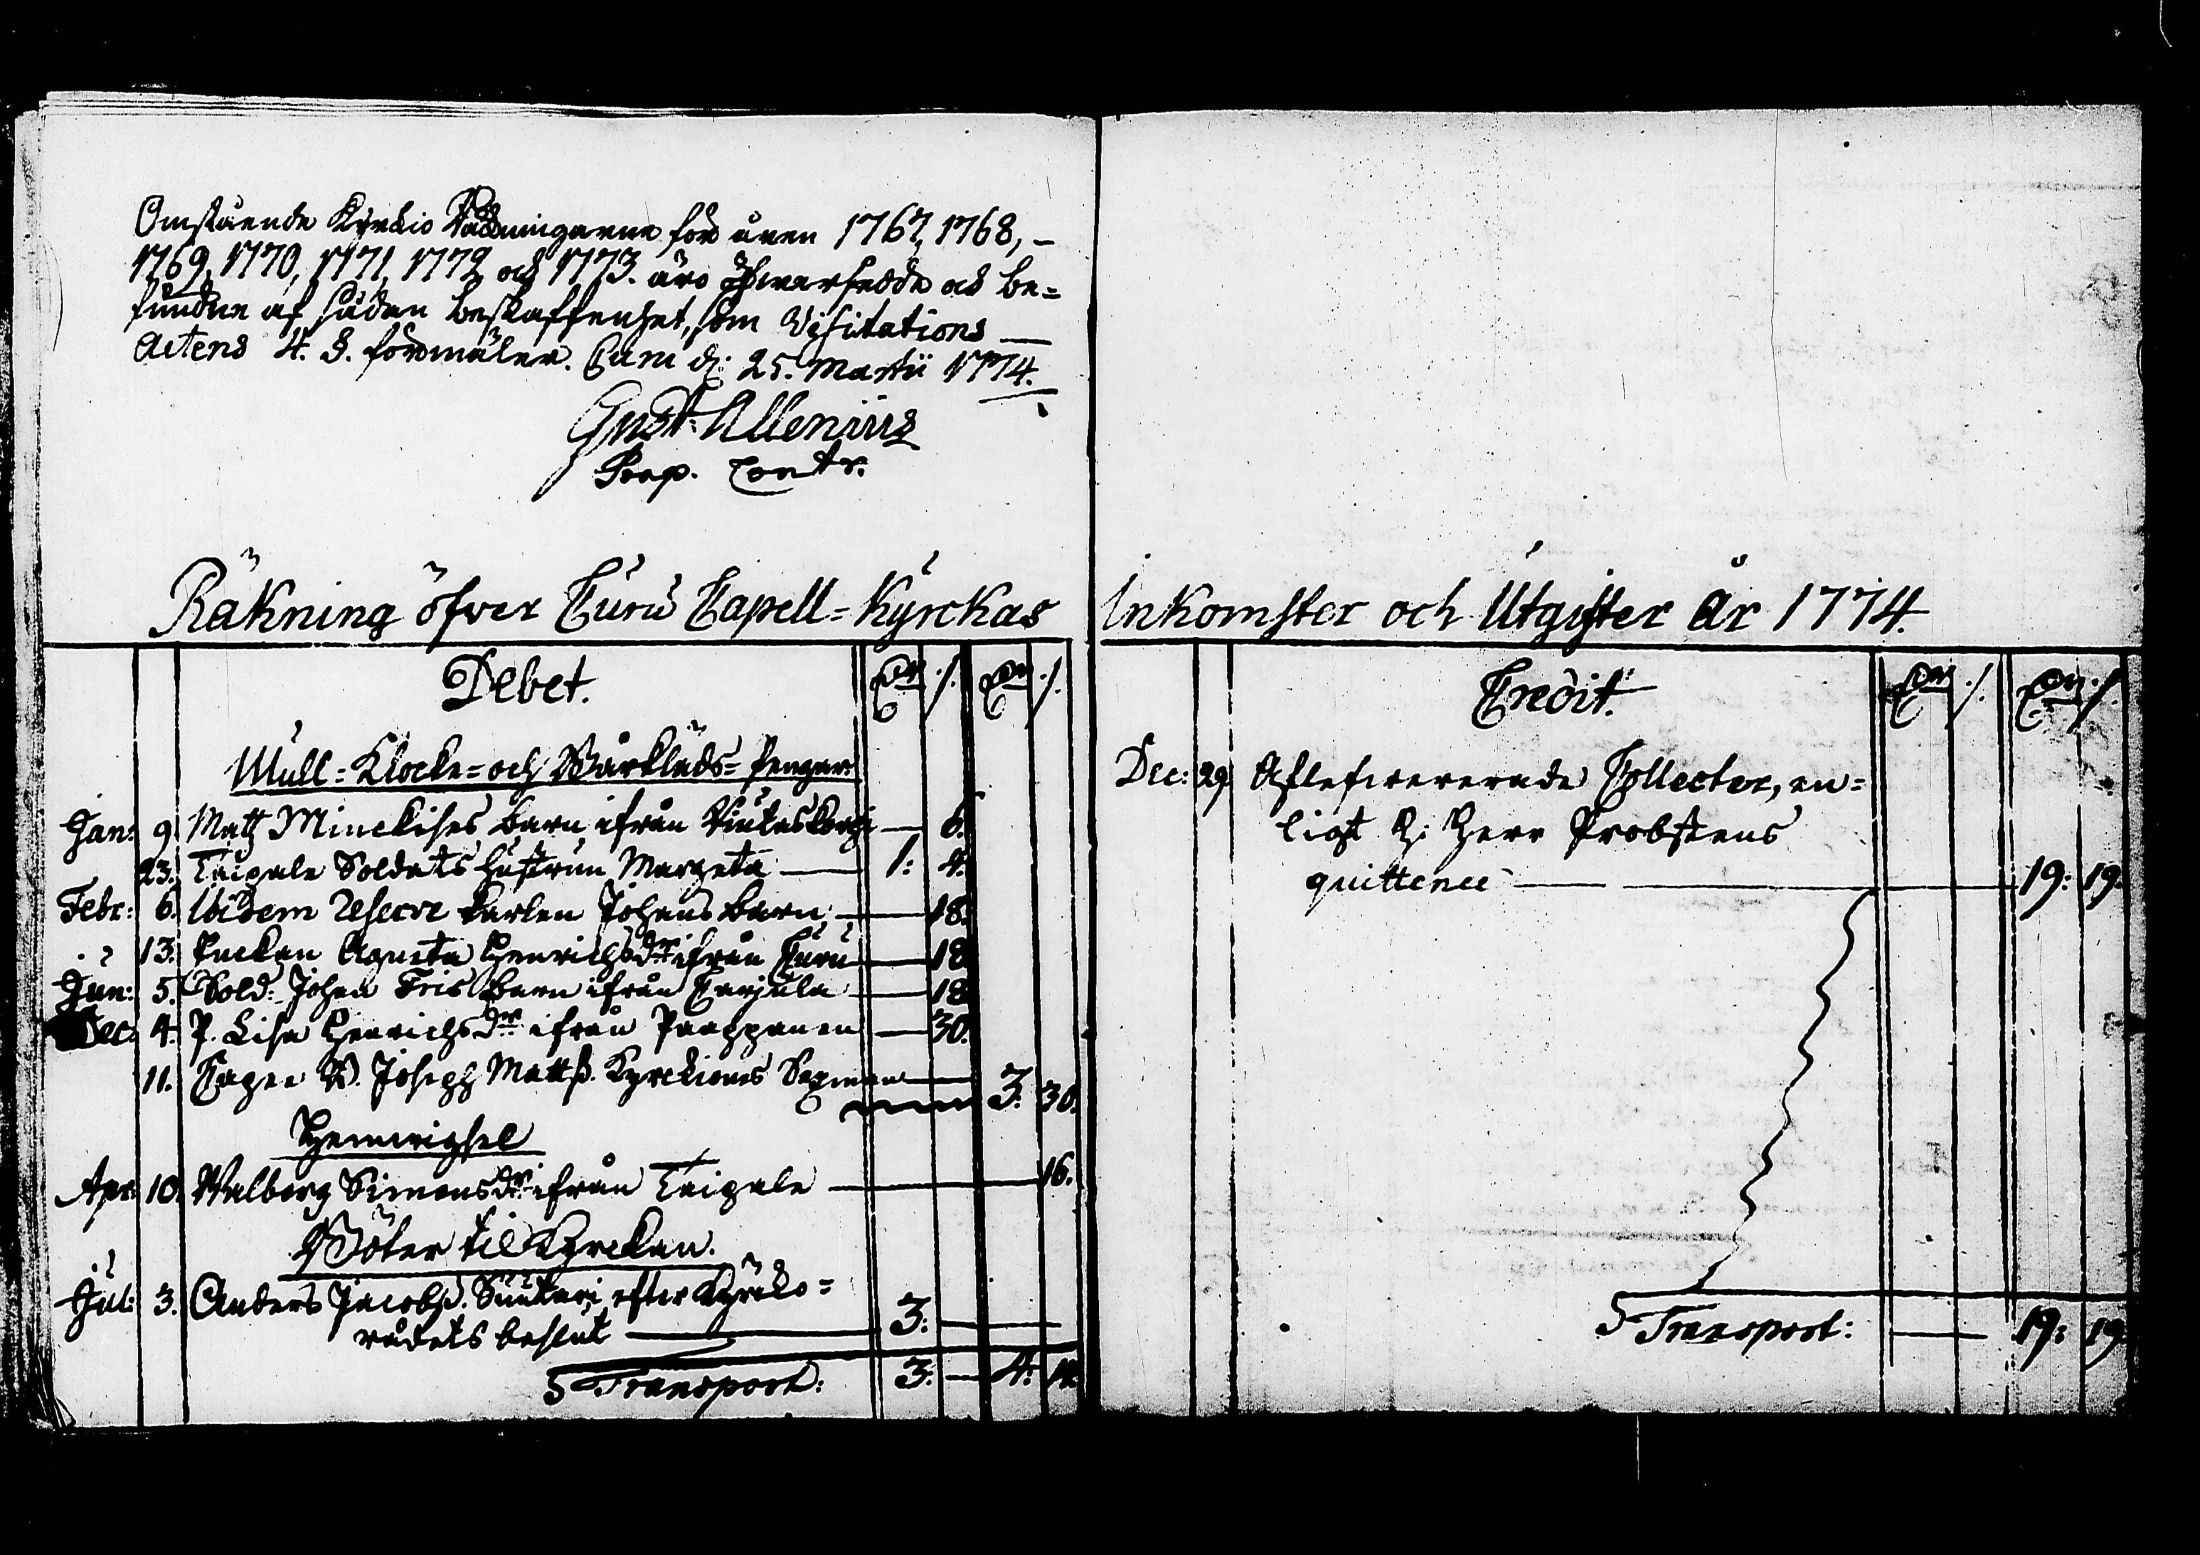 Omstående Kyrckio Räkningarne för åren 1767, 1768, –
1769, 1770, 1771, 1772 och 1773. äro öfwersedde och be=
fundne af sådan beskaffenhet, som Visitations
Actens 4. §. förmäler. Curu d: 25. Martii 1774.
Gust. Allenius
Prap. Contr.
Räkning öfver Curu Capell=Kyrckas Inkomster och Utgifter År 1774.
Debet.
Mull=Klocke=och Bårkläds=pengar
Jan: 9. Matz Minckises barn ifrån — 6.
23. Taipale Soldats hustrun Margeta — 1: 4.
Febr: 6. Ibidem Reserve karlen Johans barn — 18.
13. Enckan Agneta Henrichsdr ifrån Curu — 18
Jun: 5. Sold: Johan Fris barn ifrån Carjula — 18
Dec: 4. P. Lisa Henrichsdr ifrån Paappanen — 30.
11. W. Joseph Mattss. Kyrckiones Sexman — 3. 30.
Testamenten
Apr: 10. Walborg Simonsdr ifrån Taipale — 16.
Böter til Kyrckan.
Jul: 3. Anders Jacobss. efter Kyrcko=
rådets beslut — 3: —
Transport: 3: — 4:
Credit.
Dec: 29. Aflefwererade Collecter, en=
ligt H: Herr Probstens
quittence — 19: 19.
Transport: — 19: 19